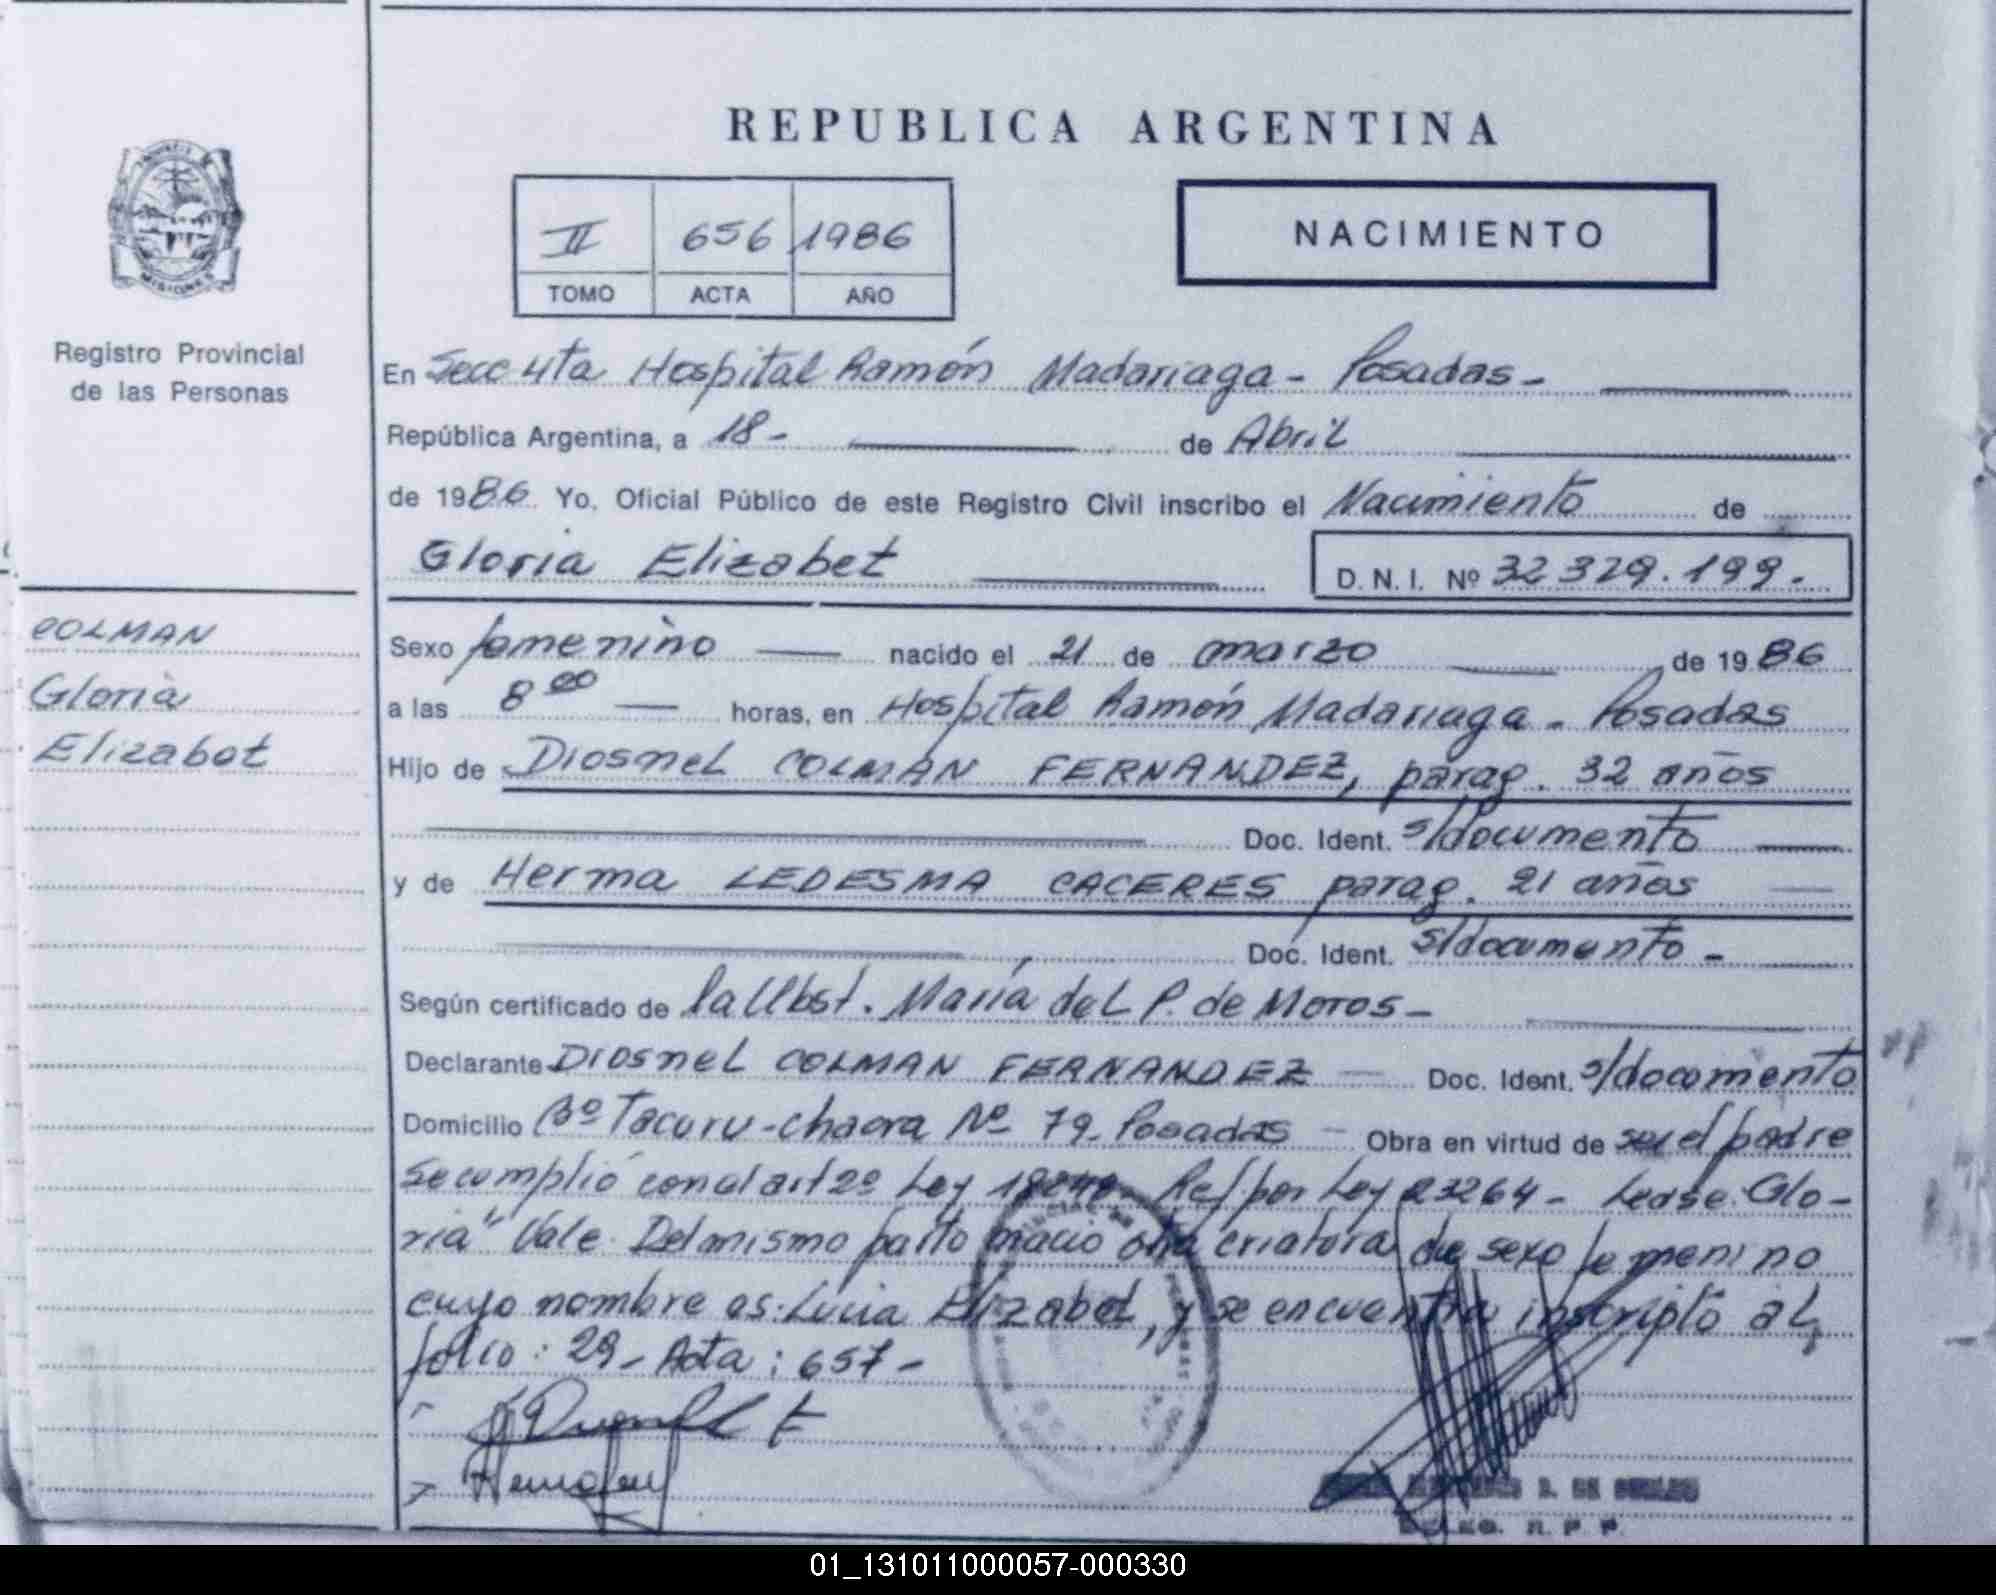 REPUBLICA ARGENTINA
II 656 1986
TOMO ACTA AÑO
NACIMIENTO
Registro Provincial
de las Personas
COLMAN
Gloria
Elizabet
En Secc 4ta Hospital Ramón Madariaga - Posadas -
República Argentina, a 18 - de Abril
de 1986. Yo, Oficial Público de este Registro Civil inscribo el Nacimiento de
Gloria Elizabet
D. N. I. Nº 32 329.199.
Sexo femenino nacido el 21 de marzo de 1986
a las 8 00 horas, en Hospital Ramón Madariaga - Posadas
Hijo de Diosnel COLMAN FERNANDEZ, parag. 32 años
Doc. Ident. s/documento
y de Herma LEDESMA CACERES parag. 21 años
Doc. Ident. s/documento -
Según certificado de la Obst. María del P. de Moros -
Declarante Diosnel COLMAN FERNANDEZ Doc. Ident. s/documento
Domicilio Bº Tacuru - chacra Nº 79 - Posadas - Obra en virtud de ser el padre
Se cumplió con el art 2º Ley 18248. Ref por Ley 23264 - Lease: Glo-
ria" Vale. Del mismo parto nacio otra criatura de sexo femenino
cuyo nombre es: Lucia Elizabet, y se encuentra inscripto al
folio: 29 - Acta: 657 -
D. DE
R. P. P.
01_131011000057-000330